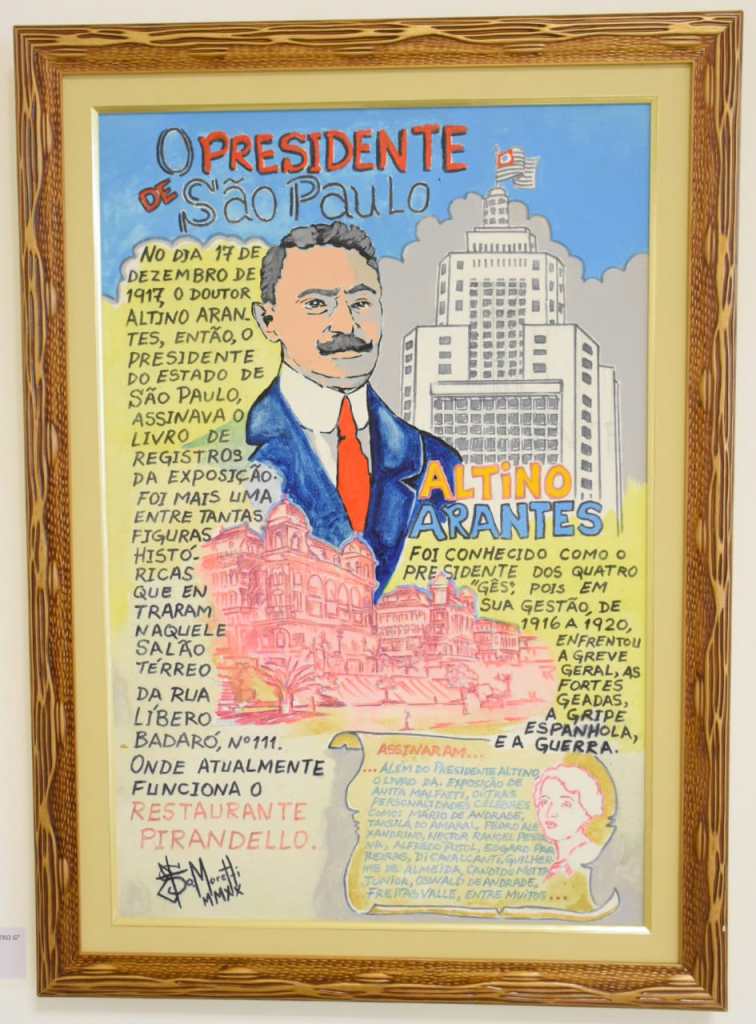 O PRESIDENTE
DE São PAULO
NO DIA 17 DE
DEZEMBRO DE
1917, O DOUTOR
ALTINO ARAN-
TES, ENTÃO, O
PRESIDENTE
DO ESTADO DE
SÃO PAULO,
ASSINAVA O
LIVRO DE
REGISTROS
DA EXPOSIÇÃO.
FOI MAIS UMA
ENTRE TANTAS
FIGURAS
HISTÓ-
RICAS
QUE EN
TRARAM
NAQUELE
SALÃO
TÉRREO
DA RUA
LÍBERO
BADARÓ, Nº 111.
ONDE ATUALMENTE
FUNCIONA O
RESTAURANTE
PIRANDELLO.
ALTiNO
ARANTES
FOI CONHECIDO COMO O
PRESIDENTE DOS QUATRO
"GÊS", POIS EM
SUA GESTÃO, DE
1916 A 1920,
ENFRENTOU
A GREVE
GERAL, AS
FORTES
GEADAS,
A GRIPE
ESPANHOLA,
E A GUERRA.
ASSINARAM...
...ALÉM DO PRESIDENTE ALTINO,
O LIVRO DA EXPOSIÇÃO DE
ANITA MALFATTI, OUTRAS
PERSONALIDADES CÉLEBRES
COMO: MÁRIO DE ANDRADE,
TARSILA DO AMARAL, PEDRO ALE
XANDRINO, NESTOR RANGEL PESTA
NA, ALFREDO PUJOL, EDGARD PAR
REIRAS, DI CAVALCANTI, GUILHER
ME DE ALMEIDA, CANDIDO MOTTA
JUNIOR, OSWALD DE ANDRADE,
FREITAS VALLE, ENTRE MUITOS...
Moretti
MMXIX